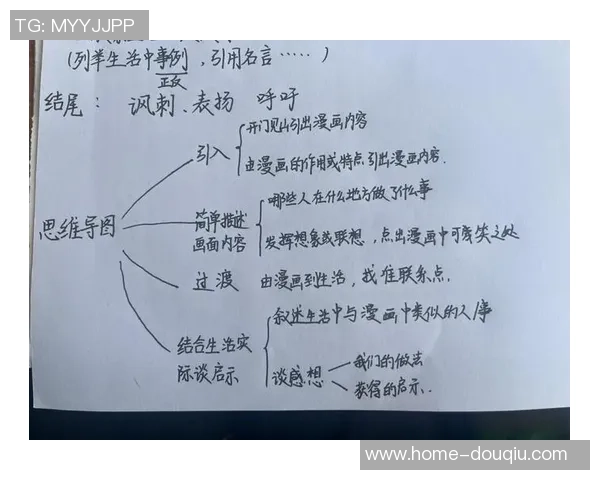 TG: MYYJJPP
(列举生活中事例，引用名言……)
正反
结尾： 讽刺、表扬 呼吁
思维导图
引入
开门见山引出漫画内容
由漫画的作用或特点引出漫画内容.
简单描述
画面内容
哪些人在什么地方做了什么事
发挥想象或联想，点出漫画中可笑之处
过渡 由漫画到生活，找准联系点.
结合生活实
际谈启示
叙述生活中与漫画中类似的人事
谈感想
我们的做法
获得的启示.
www.home-douqiu.com